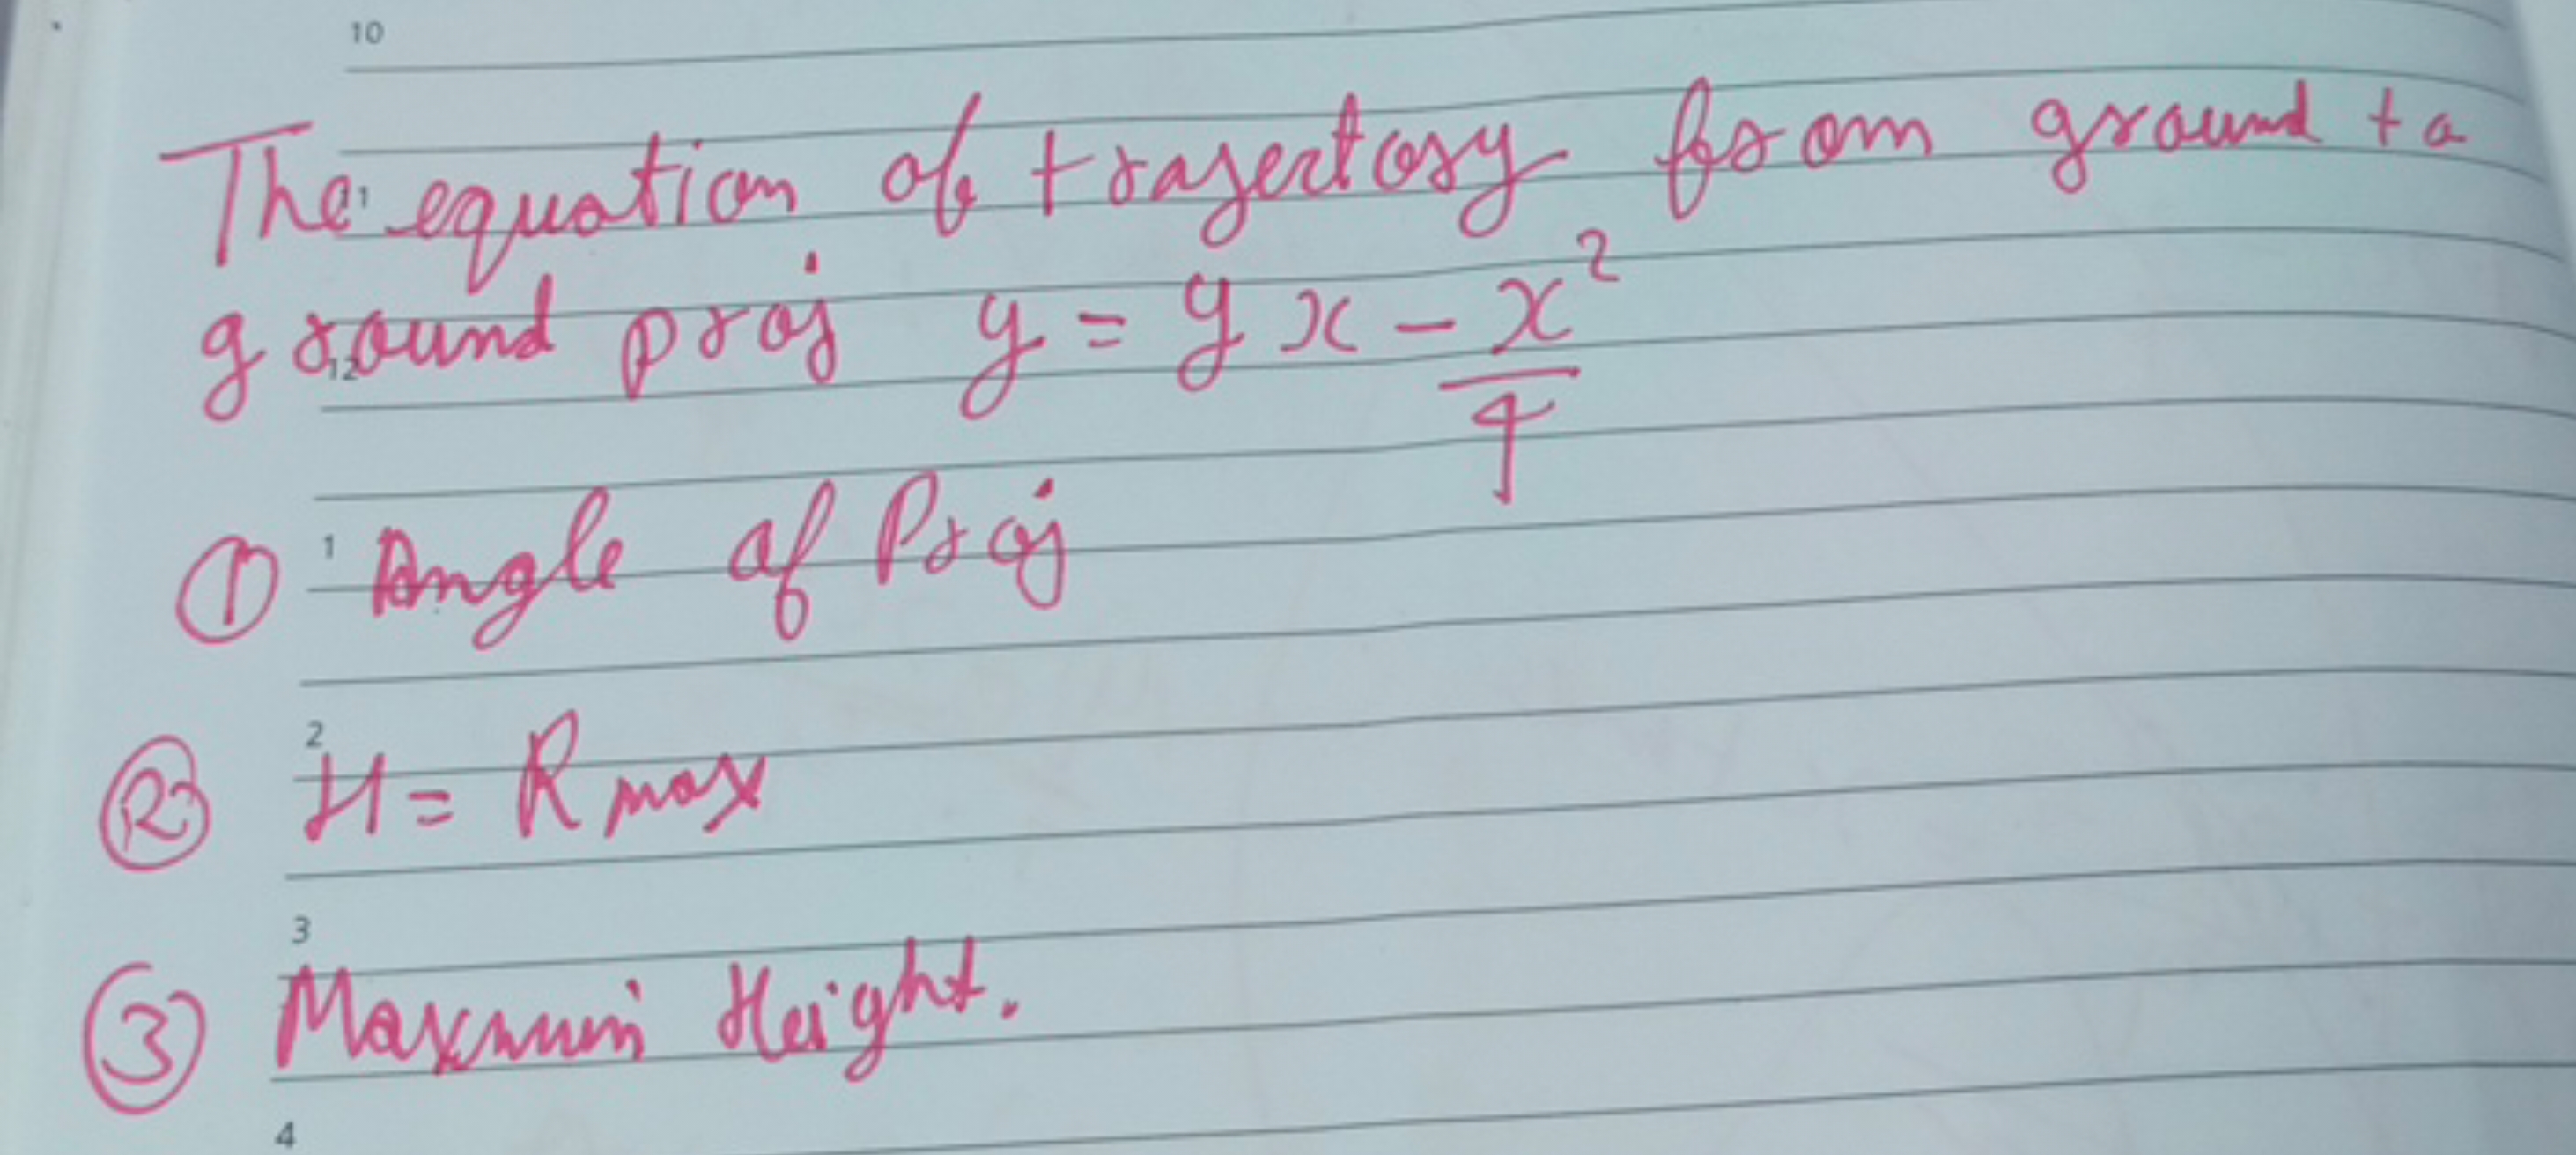 10
The equation of trajectory from ground to
11
ground proj y = yx - x²/4
12
1
① Angle of Proj
2
② H = R max
3
③ Maxmum Height.
4